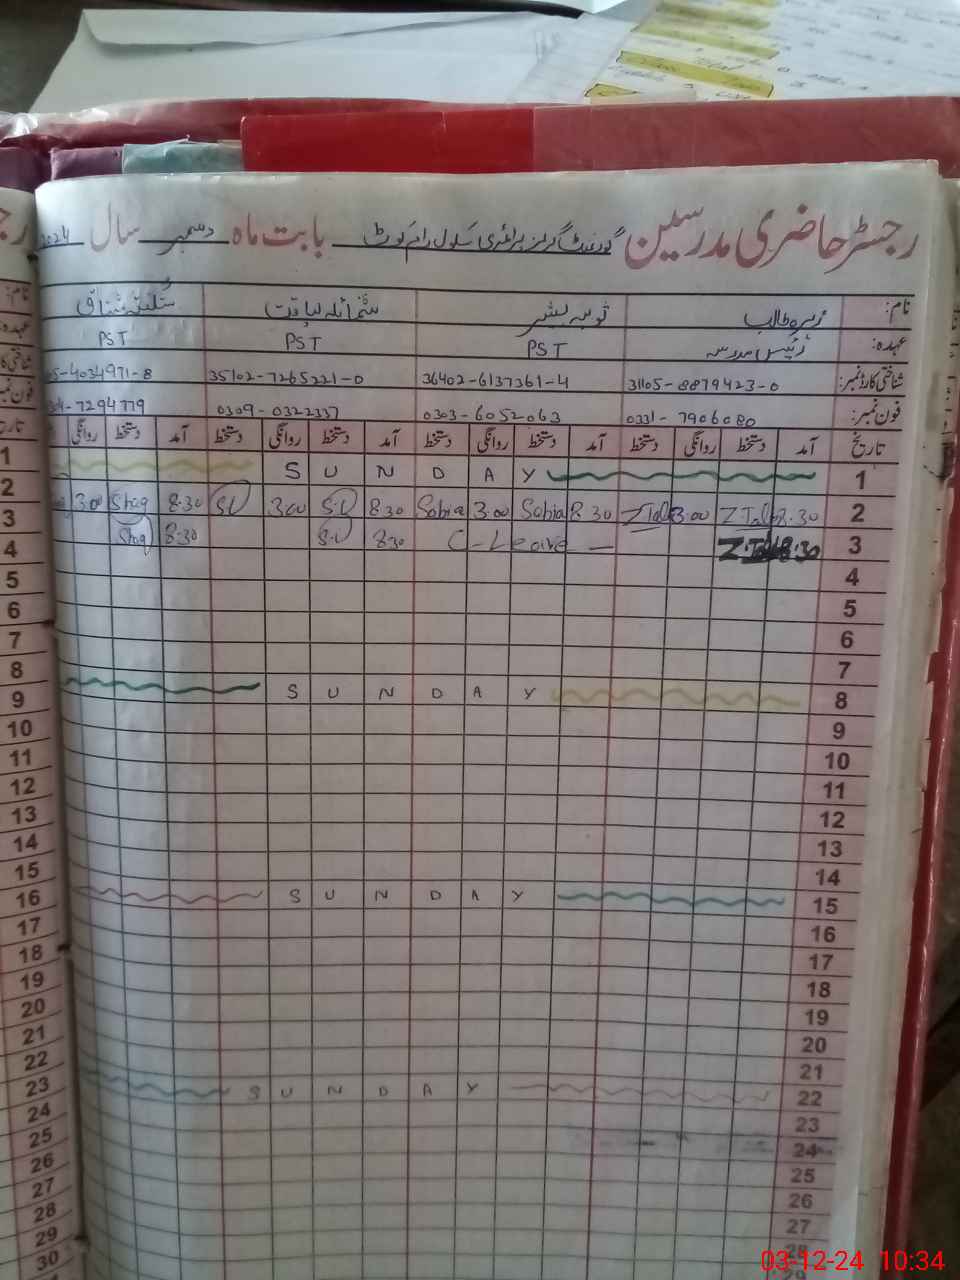 رجسٹر حاضری مدرسین گورنمنٹ گرلز پرائمری سکول بابت ماہ دسمبر سال 2024
نام: زہرہ طالب ثوبیہ بشیر شمائلہ لیاقت مشتاق
عہدہ: رئیس مدرسہ PST PST PST
شناختی کارڈ نمبر: 31105-8879423-0 36402-6137361-4 35102-7265221-0 4034971-8
فون نمبر: 0331-7906080 0303-6052063 0309-0322337 7294779
تاریخ آمد دستخط روانگی دستخط آمد دستخط روانگی دستخط آمد دستخط روانگی دستخط آمد دستخط روانگی
1 SUNDAY
2 8:30 Z.Tal 3:00 Z.Tal 8:30 Sobia 3:00 Sobia 8:30 S.U 3:00 S.U 8:30 Shag 3:00
3 8:30 Z.Tal C-Leave — 8:30 S.U 8:30 Shag
4
5
6
7
8 SUNDAY
9
10
11
12
13
14
15 SUNDAY
16
17
18
19
20
21
22 SUNDAY
23
24
25
26
27
28
29
1
2
3
4
5
6
7
8
9
10
11
12
13
14
15
16
17
18
19
20
21
22
23
24
25
26
27
28
29
30
03-12-24 10:34